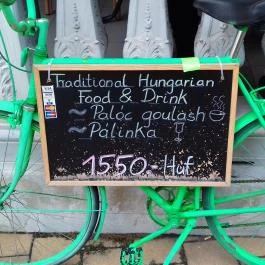 Traditional Hungarian
Food & Drink
~ Palóc goulash
~ Pálinka
1550.- Huf